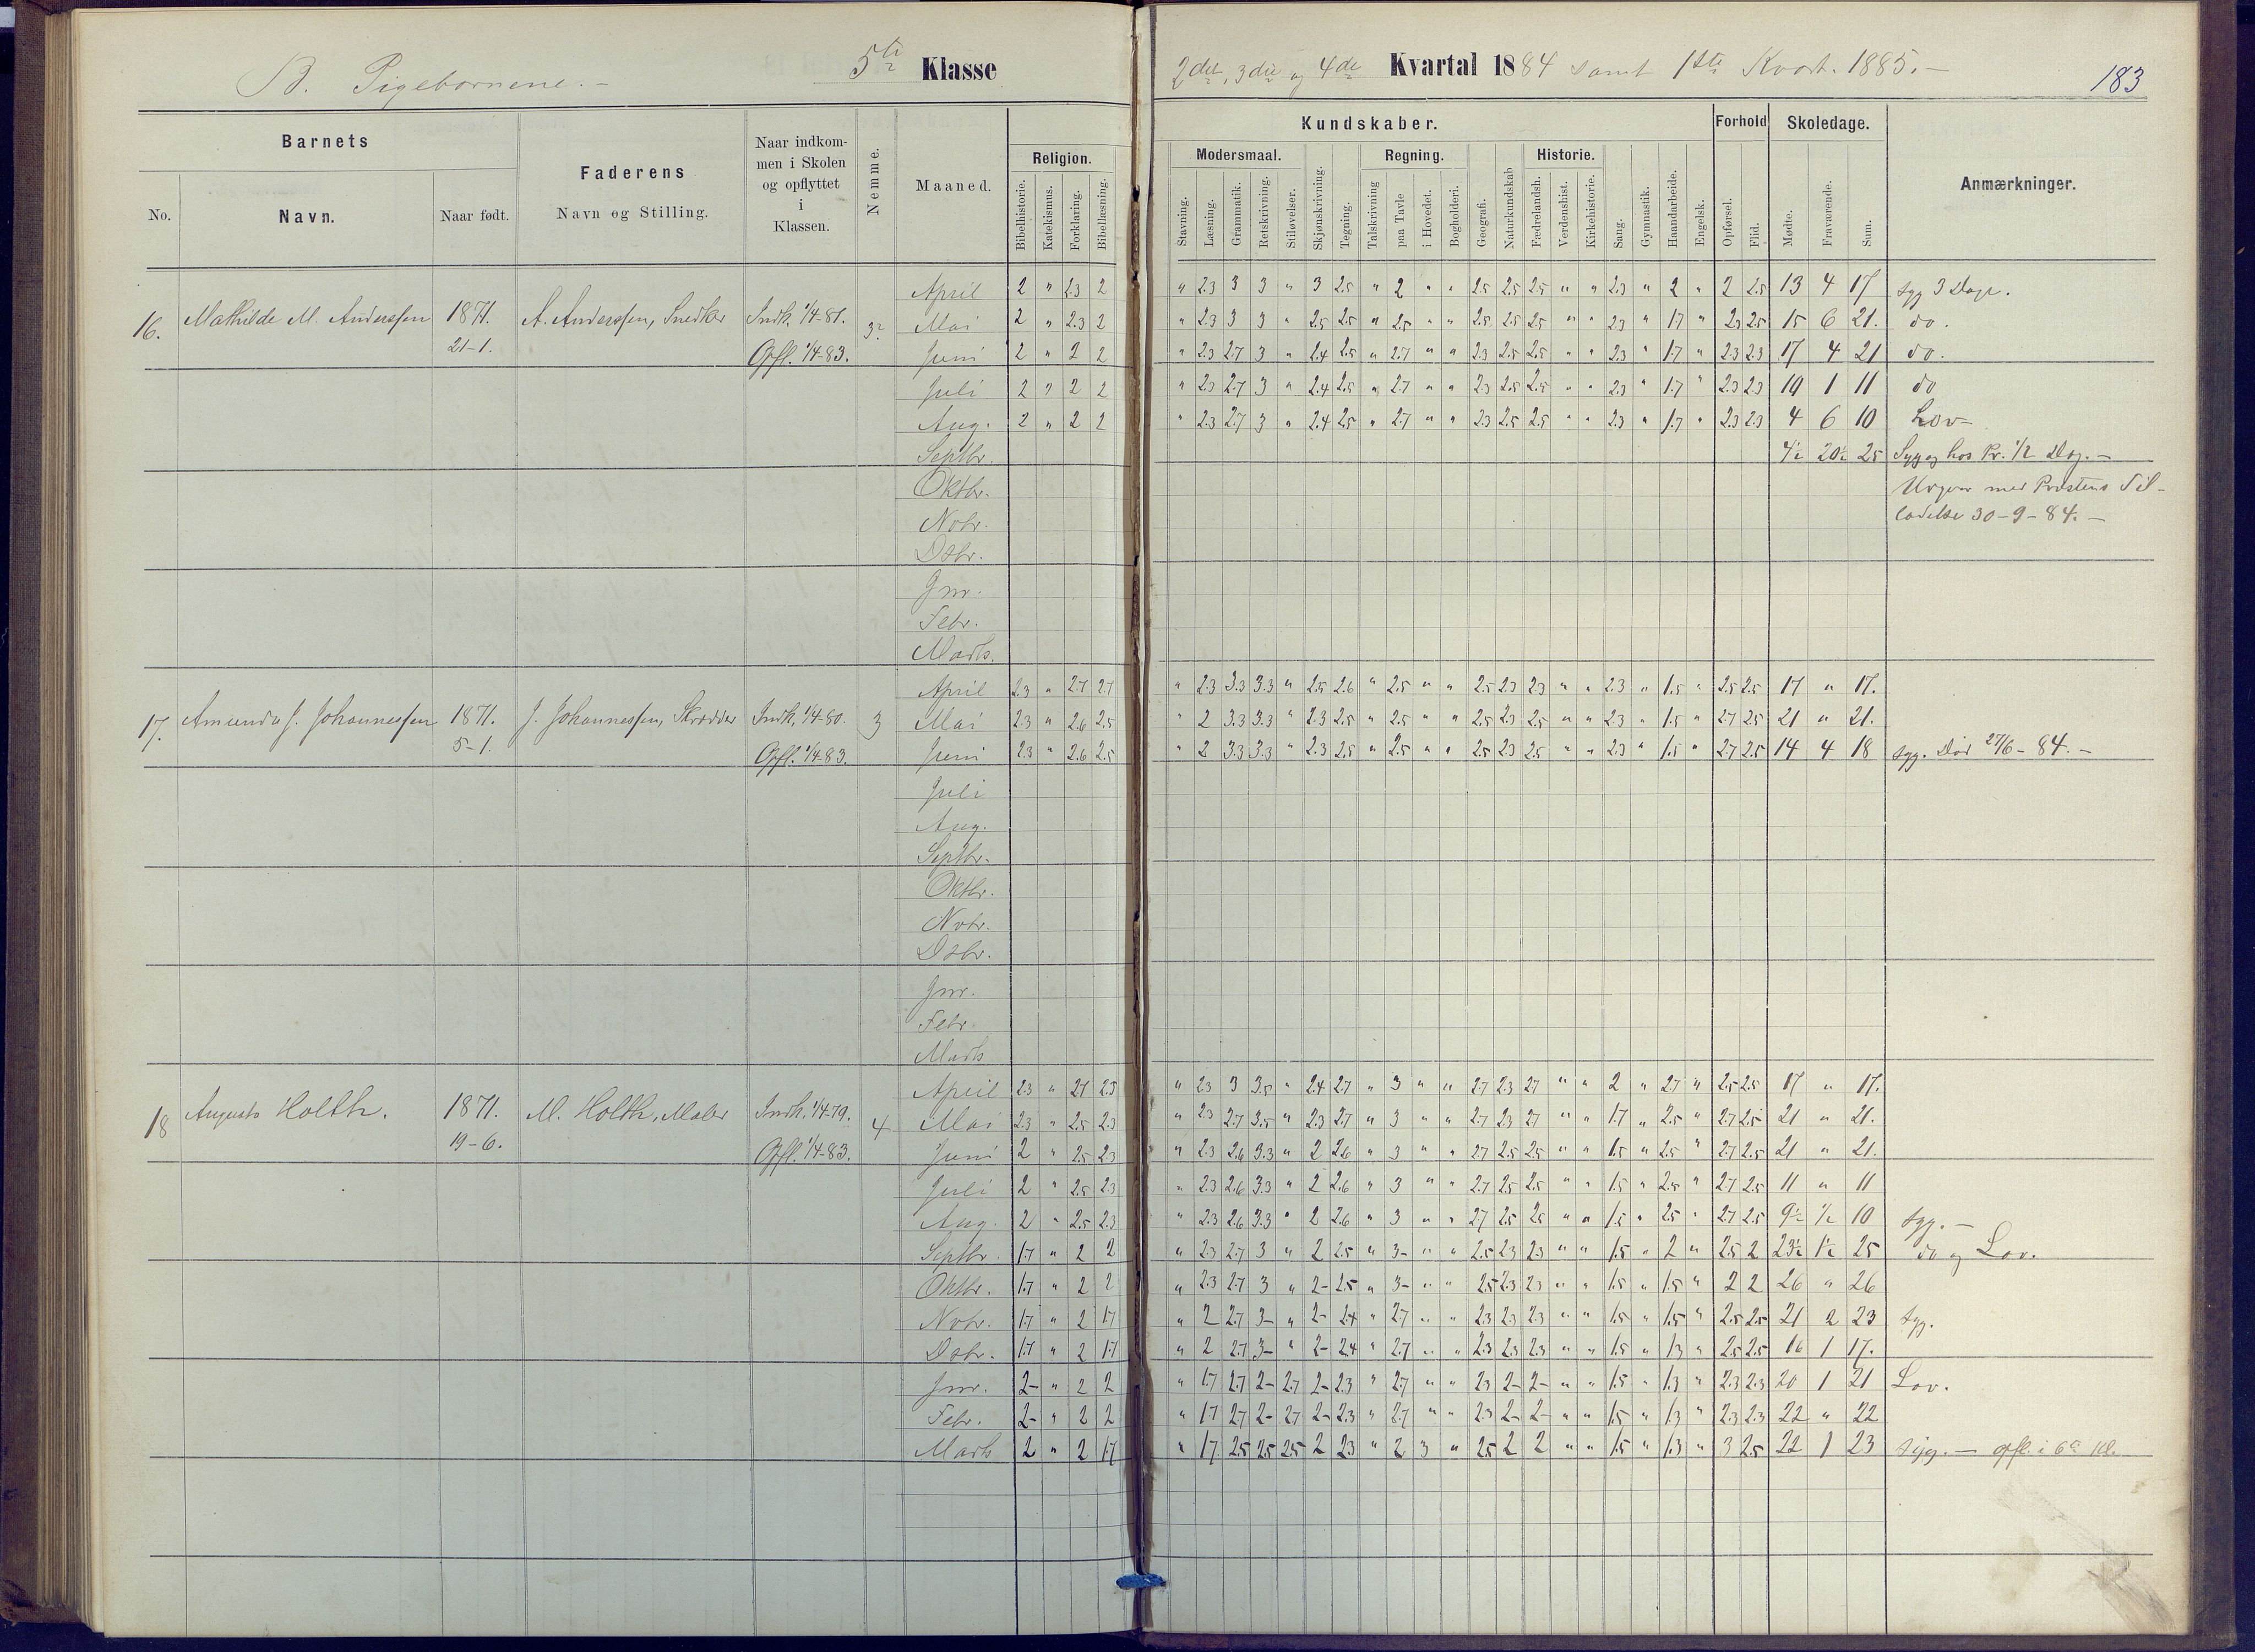 B. Pigebørnene. –
5te Klasse
2det, 3die og 4de Kvartal 1884 samt 1ste Kvart. 1885. –
183
Barnets
No.
Navn.
Naar født.
Faderens
Navn og Stilling.
Naar indkom-
men i Skolen
og opflyttet
i
Klassen.
Nemme.
Maaned.
Kundskaber.
Religion.
Bibelhistorie.
Katekismus.
Forklaring.
Bibellæsning.
Modersmaal.
Stavning.
Læsning.
Grammatik.
Retskrivning.
Stiløvelser.
Skjønskrivning.
Tegning.
Regning.
Talskrivning
paa Tavle
i Hovedet.
Bogholderi.
Geografi.
Naturkundskab
Historie.
Fædrelandsh.
Verdenshist.
Kirkehistorie.
Sang.
Gymnastik.
Haandarbeide.
Engelsk.
Forhold
Opførsel.
Flid.
Skoledage.
Mødte.
Fraværende.
Sum.
Anmærkninger.
16. Mathilde M. Anderssen 1871. 21-1. A. Anderssen, Snedker Indk. 1/4-81. Opfl. 1/4-83.
April 2 " 2.3 2 " 2.3 3 3 " 3 2.5 " 2 " " 2.5 2.5 2.5 " " 2.3 " 2 " 2 2.5 13 4 17 syg 3 Dage.
Mai 2 " 2.3 2 " 2.3 3 3 " 2.5 2.5 " 2.5 " " 2.5 2.5 2.5 " " 2.3 " 1.7 " 2.3 2.5 15 6 21. do.
Juni 2 " 2 2 " 2.3 2.7 3 " 2.4 2.5 " 2.7 " " 2.3 2.5 2.5 " " 2.3 " 1.7 " 2.3 2.3 17 4 21 do.
Juli 2 " 2 2 " 2.3 2.7 3 " 2.4 2.5 " 2.7 " " 2.3 2.5 2.5 " " 2.3 " 1.7 " 2.3 2.3 10 1 11 do
Aug. 2 " 2 2 " 2.3 2.7 3 " 2.4 2.5 " 2.7 " " 2.3 2.5 2.5 " " 2.3 " 1.7 " 2.3 2.3 4 6 10 Lov
Septbr. 4½ 20½ 25 Syg og hos Pr. 1/2 Dag. –
Oktbr. med Prostens Til-
Novbr. ladelse 30-9-84. –
Dsbr.
Jnr.
Febr.
Marts.
17. Amunda J. Johannessen 1871. 5-1. J. Johannessen, Skrædder Indk. 1/4-80. Opfl. 1/4-83. 3
April 2.3 " 2.7 2.7 " 2.3 3.3 3.3 " 2.5 2.6 " 2.5 " " 2.5 2.3 2.3 " " 2.3 " 1.5 " 2.5 2.5 17 " 17.
Mai 2.3 " 2.6 2.5 " 2 3.3 3.3 " 2.3 2.5 " 2.5 " " 2.5 2.3 2.5 " " 2.3 " 1.5 " 2.7 2.5 21 " 21.
Juni 2.3 " 2.6 2.5 " 2 3.3 3.3 " 2.3 2.5 " 2.5 " " 2.5 2.3 2.5 " " 2.3 " 1.5 " 2.7 2.5 14 4 18 syg. Død 27/6-84. –
Juli
Aug.
Septbr.
Oktbr.
Novbr.
Dsbr.
Jnr.
Febr
Marts
18 Augusta Holth. 1871. 19-6. M. Holth, Maler Indk. 1/4 79. Opfl. 1/4-83. 4
April 2.3 " 2.7 2.3 " 2.3 3 3.5 " 2.4 2.7 " 3 " " 2.7 2.3 2.7 " " 2 " 2.7 " 2.5 2.5 17 " 17.
Mai 2.3 " 2.5 2.3 " 2.3 2.7 3.5 " 2.3 2.7 " 3 " " 2.7 2.3 2.7 " " 1.7 " 2.5 " 2.7 2.5 21 " 21.
Juni 2 " 2.5 2.3 " 2.3 2.6 3.3 " 2 2.6 " 3 " " 2.7 2.5 2.5 " " 1.5 " 2.5 " 2.7 2.5 21 " 21.
Juli 2 " 2.5 2.3 " 2.3 2.6 3.3 " 2 2.6 " 3 " " 2.7 2.5 2.5 " " 1.5 " 2.5 " 2.7 2.5 11 " 11
Aug. 2 " 2.5 2.3 " 2.3 2.6 3.3 " 2 2.6 " 3 " " 2.7 2.5 2.5 " " 1.5 " 2.5 " 2.7 2.5 9½ ½ 10 syg. –
Septbr. 1.7 " 2 2 " 2.3 2.7 3 " 2 2.5 " 3- " " 2.5 2.3 2.3 " " 1.5 " 2 " 2.5 2 23½ 1½ 25 do og Lov.
Oktbr. 1.7 " 2 2 " 2.3 2.7 3 " 2- 2.5 " 3- " " 2.5 2.3 2.3 " " 1.5 " 1.5 " 2 2 26 " 26
Novbr. 1.7 " 2 1.7 " 2 2.7 3- " 2- 2.4 " 2.7 " " 2.3 2.3 2.3 " " 1.5 " 1.5 " 2.5 2.5 21 2 23 syg.
Dsbr. 1.7 " 2 1.7 " 2 2.7 3- " 2- 2.4 " 2.7 " " 2.3 2.3 2.3 " " 1.5 " 1.3 " 2.5 2.5 16 1 17.
Jnr. 2- " 2 2 " 1.7 2.7 2- 2.7 2- 2.3 " 2.7 " " 2.3 2- 2- " " 1.5 " 1.3 " 2.3 2.3 20 1 21 Lov.
Febr. 2- " 2 2 " 1.7 2.7 2- 2.7 2- 2.3 " 2.7 " " 2.3 2- 2- " " 1.5 " 1.3 " 2.3 2.3 22 " 22
Marts 2 " 2 1.7 " 1.7 2.5 2.5 2.5 2 2.3 " 2 3 " 2.5 2 2 " " 1.5 " 1.3 " 3 2.5 22 1 23 syg. – opfl. i 6te Kl.